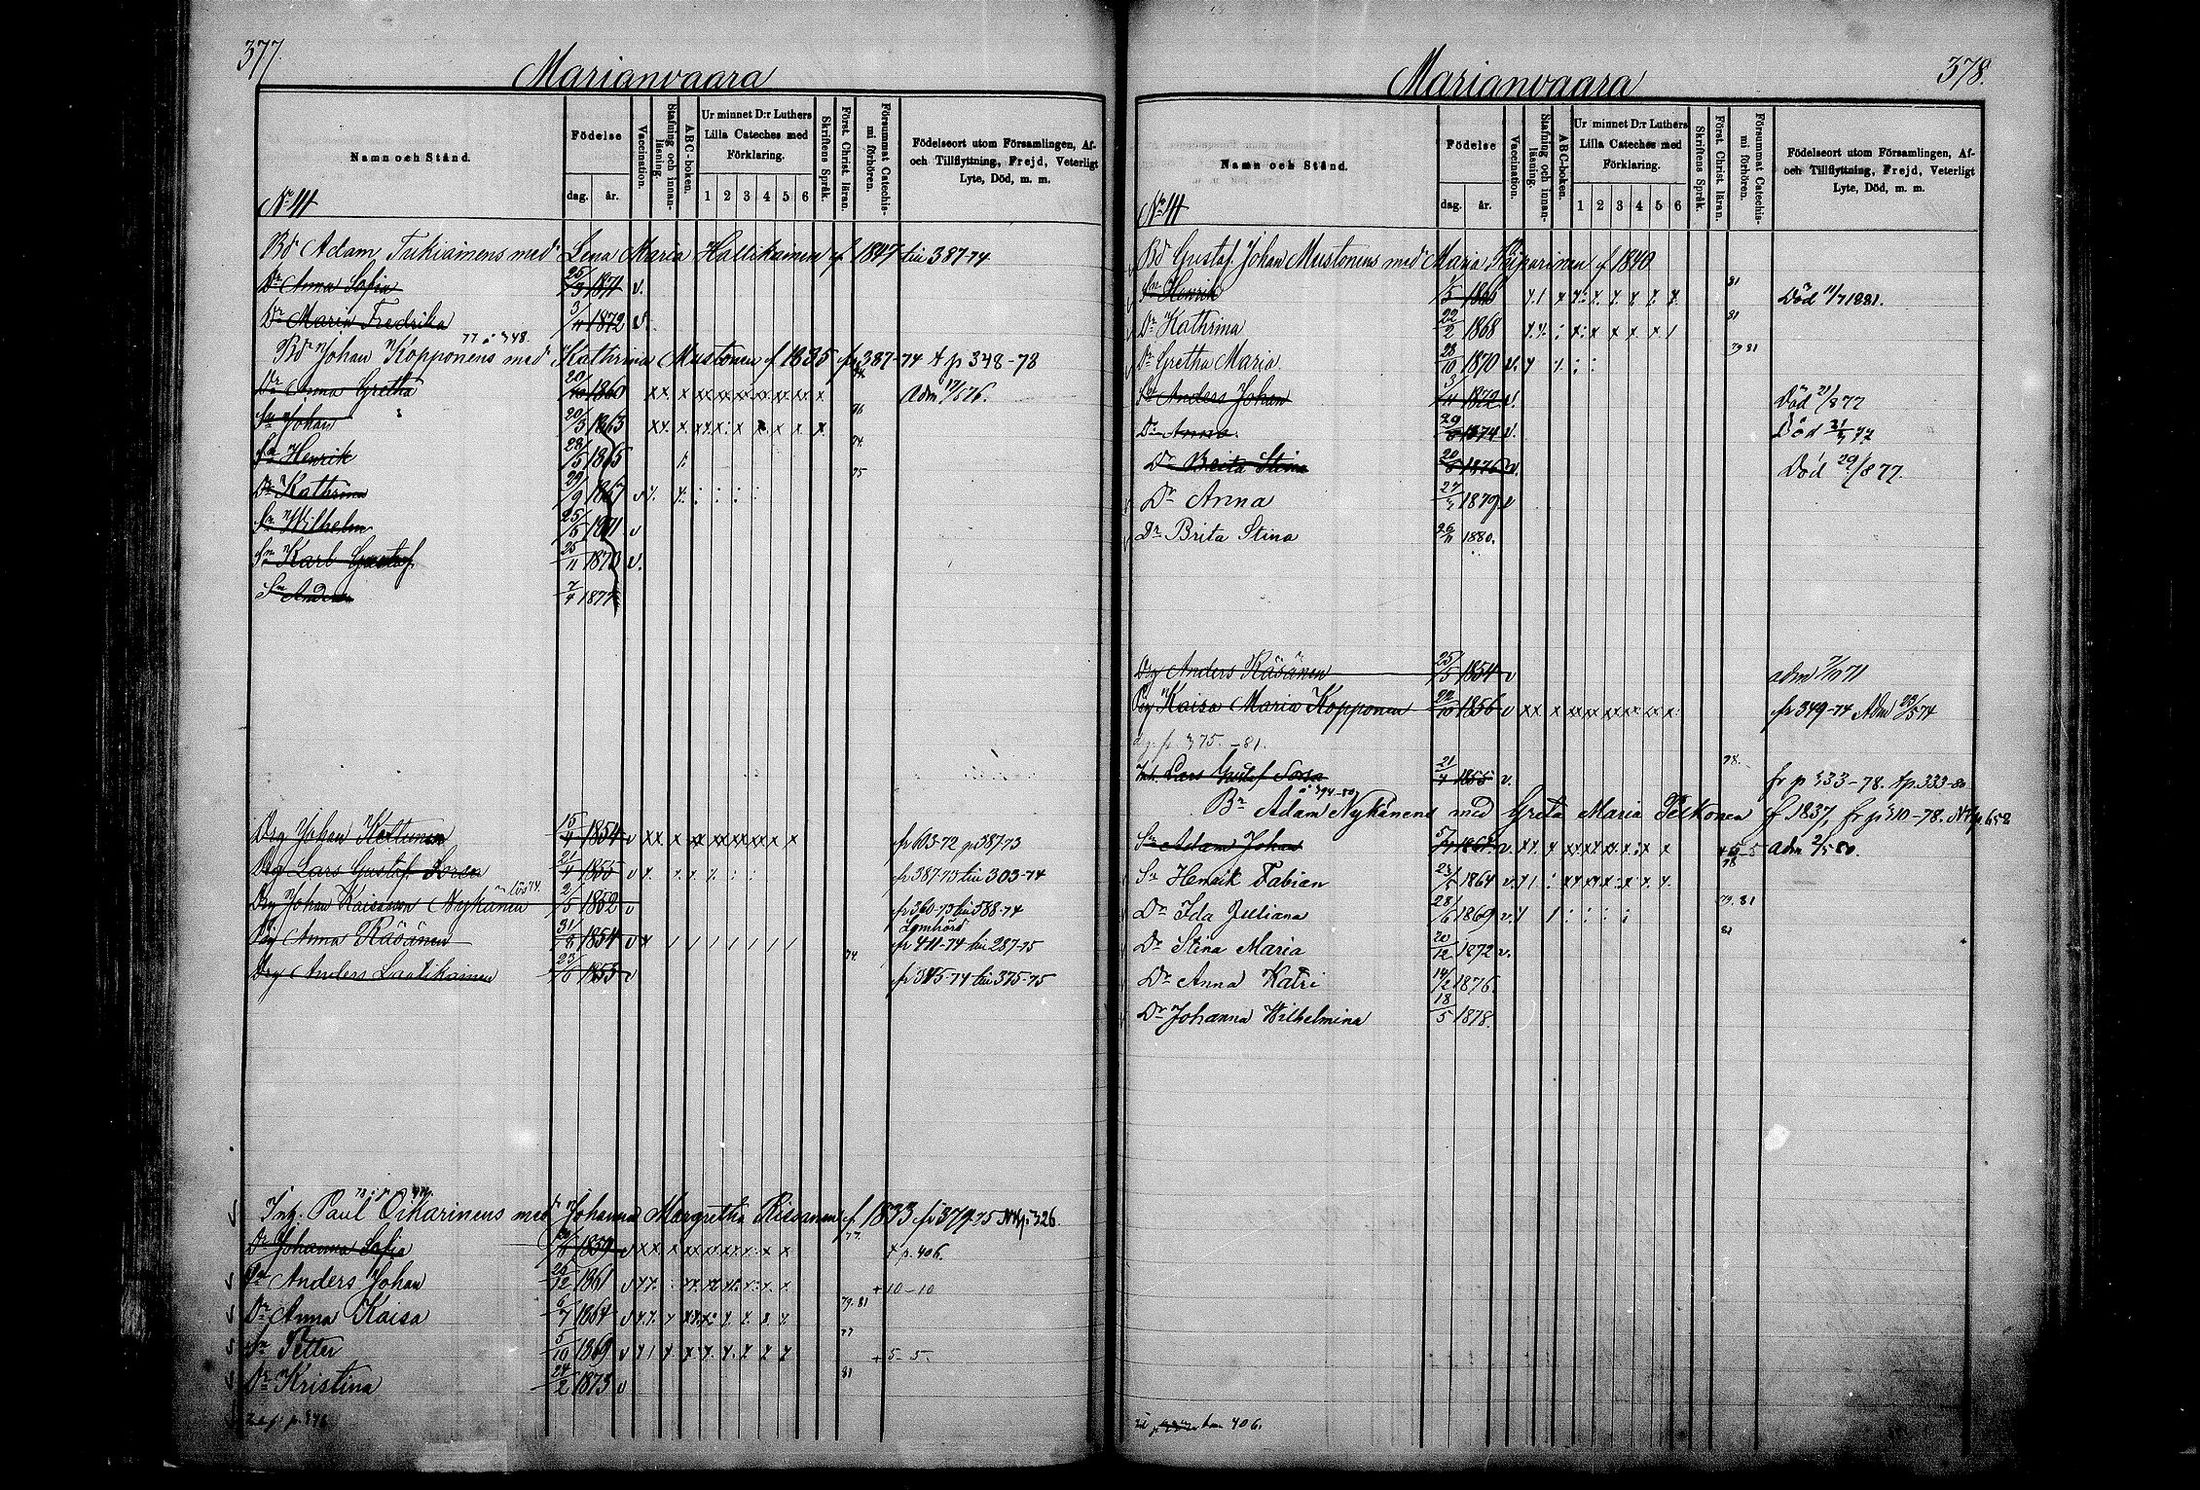 377.
Marianvaara
Namn och Stånd.
Födelse
dag. år.
Vaccination.
Stafning och innanläsning.
ABC-boken.
Ur minnet D:r Luthers Lilla Cateches med Förklaring.
1 2 3 4 5 6
Skriftens Språk.
Först. Christ. läran.
Försummat Catechismi förhören.
Födelseort utom Församlingen, Af- och Tillflyttning, Frejd, Veterligt Lyte, Död, m. m.
No 14
Bd Adam Tukiainens med Lena Maria Hallikainen f 1847 till 387-74
Dr Anna Sofia 25/3 1871 v.
Dr Maria Fredrika 3/4 1872 v.
77 å 348.
Bd Johan Kopponens med Kathrina Mustonen f 1835 fr 387-74 t p 348-78
Dr Anna Gretha 20/10 1860 xx x xx xx xx xx xx x Adm
Sn Johan 20/3 1863 76
Sn Henrik 28/5 1865 74
Dr Kathrina 29/9 1867 v 75
Sn Wilhelm 25/5 1871 v
Sn Karl Gustaf 25/11 1873 v.
Sn Anders 7/4 1877
Drg Johan Kettunen 15/4 1854 v xx x fr 103-72 p 387-73
Drg Lars Gustaf Soren 21/4 1855 v fr 387-73 till 303-74
Drg Johan Kaisanen Nykänen 2/5 1852 v fr 360-73 till 388-74
Pig Anna Räsänen 31/8 1854 v x / / / / / / fr 411-74 till 287-75
Drg Anders Laatikainen 23/6 1855 v 74 fr 345-74 till 375-75
Inh. Paul Oikarinens med Johanna Margretha Rissanen f. 1833 fr 379-75 N K p. 326
Dr Johanna Sofia 1859 v xx 77. t p. 406.
Sn Anders Johan 25/12 1861 v + 10 - 10
Dr Anna Kaisa 6/7 1864 v 79. 81
Sn Petter 5/10 1869 v 77 + 5 - 5.
Dr Kristina 24/2 1873 v 81
378.
Marianvaara
Namn och Stånd.
Födelse
dag. år.
Vaccination.
Stafning och innanläsning.
ABC-boken.
Ur minnet D:r Luthers Lilla Cateches med Förklaring.
1 2 3 4 5 6
Skriftens Språk.
Först. Christ. läran.
Försummat Catechismi förhören.
Födelseort utom Församlingen, Af- och Tillflyttning, Frejd, Veterligt Lyte, Död, m. m.
No 14
Bd Gustaf Johan Mustonens med Maria Piiparinen f 1840
Sn Henrik 1866 81 Död 11/7 1881.
Dr Kathrina 22/2 1868 81
Dr Gretha Maria 28/10 1870 v. 79 81
Sn Anders Johan 3/11 1872 v. Död 21/8 77
Dr Anna 1874 v. Död 77
Dr Brita Stina 1876 v. Död 29/8 77.
Dr Anna 27/3 1879 v
Dr Brita Stina 26/11 1880.
Drg Anders Räsänen 25/5 1854 v adm 7/10 71
Pig Kaisa Maria Kopponen 22/10 1856 v xx x fr 349-74 Adm 23/5 74
dg. p. 375. - 81.
Inh. Lars Gustaf Soren 21/4 1855 v. 78. fr p 333-78. t p. 333-80
å 394-80
Br Adam Nykänens med Greta Maria Pelkonen f 1837, fr p 310-78. N K p 652
Sn Adam Johan v. + 5 - 5 adm 2/5 80.
Sn Henrik Fabian 23/5 1864 v. 78
Dr Ida Juliana 28/6 1869 v. 79. 81
Dr Stina Maria 20/12 1872 v. 81
Dr Anna Katri 14/2 1876.
Dr Johanna Wilhelmina 18/5 1878.
406.